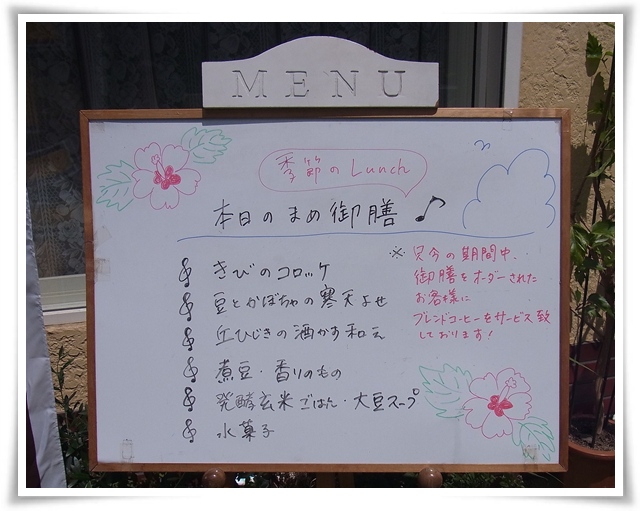 MENU
季節のLunch
本日のまめ御膳♪
きびのコロッケ
豆とかぼちゃの寒天よせ
丘ひじきの酒かす和え
煮豆・香りのもの
発酵玄米ごはん・大豆スープ
水菓子
※只今の期間中、
御膳をオーダーされた
お客様に
ブレンドコーヒーをサービス致
しております!